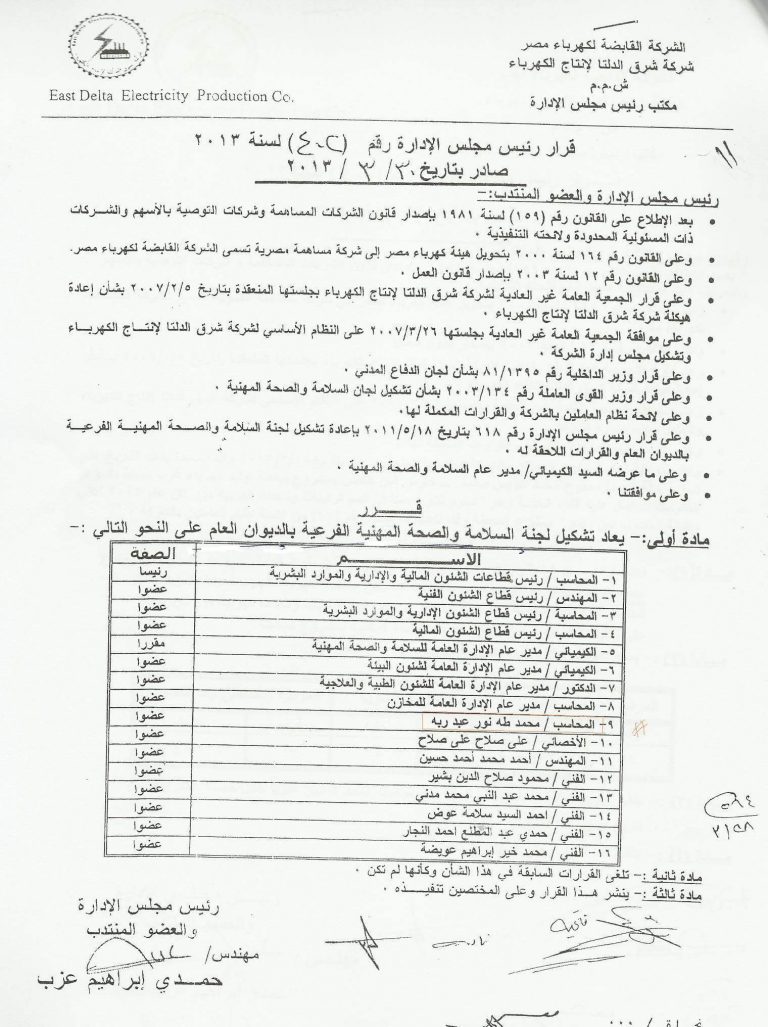 الشركة القابضة لكهرباء مصر
شركة شرق الدلتا لإنتاج الكهرباء
ش.م.م
مكتب رئيس مجلس الإدارة
East Delta Electricity Production Co.
قرار رئيس مجلس الإدارة رقم (٤٠٢) لسنة ٢٠١٣
صادر بتاريخ ٣٠/ ٣ / ٢٠١٣
رئيس مجلس الإدارة والعضو المنتدب:-
• بعد الإطلاع على القانون رقم (١٥٩) لسنة ١٩٨١ بإصدار قانون الشركات المساهمة وشركات التوصية بالأسهم والشركات
ذات المسئولية المحدودة ولائحته التنفيذية ٠
• وعلى القانون رقم ١٦٤ لسنة ٢٠٠٠ بتحويل هيئة كهرباء مصر إلى شركة مساهمة مصرية تسمى الشركة القابضة لكهرباء مصر.
• وعلى القانون رقم ١٢ لسنة ٢٠٠٣ بإصدار قانون العمل ٠
• وعلى قرار الجمعية العامة غير العادية لشركة شرق الدلتا لإنتاج الكهرباء بجلستها المنعقدة بتاريخ ٢٠٠٧/٢/٥ بشأن إعادة
هيكلة شركة شرق الدلتا لإنتاج الكهرباء ٠
• وعلى موافقة الجمعية العامة غير العادية بجلستها ٢٠٠٧/٣/٢٦ على النظام الأساسي لشركة شرق الدلتا لإنتاج الكهرباء
وتشكيل مجلس إدارة الشركة ٠
• وعلى قرار وزير الداخلية رقم ٨١/١٣٩٥ بشأن لجان الدفاع المدني ٠
• وعلى قرار وزير القوى العاملة رقم ٢٠٠٣/١٣٤ بشأن تشكيل لجان السلامة والصحة المهنية ٠
• وعلى لائحة نظام العاملين بالشركة والقرارات المكملة لها٠
• وعلى قرار رئيس مجلس الإدارة رقم ٦١٨ بتاريخ ٢٠١١/٥/١٨ بإعادة تشكيل لجنة السلامة والصحة المهنية الفرعية
بالديوان العام والقرارات اللاحقة له ٠
• وعلى ما عرضه السيد الكيميائي/ مدير عام السلامة والصحة المهنية ٠
• وعلى موافقتنا ٠
قـــرر
مادة أولى:- يعاد تشكيل لجنة السلامة والصحة المهنية الفرعية بالديوان العام على النحو التالي :-
الاســـم الصفة
١- المحاسب / رئيس قطاعات الشئون المالية والإدارية والموارد البشرية رئيسا
٢- المهندس / رئيس قطاع الشئون الفنية عضوا
٣- المحاسبة / رئيس قطاع الشئون الإدارية والموارد البشرية عضوا
٤- المحاسب / رئيس قطاع الشئون المالية عضوا
٥- الكيميائي / مدير عام الإدارة العامة للسلامة والصحة المهنية مقررا
٦- الكيميائي / مدير عام الإدارة العامة لشئون البيئة عضوا
٧- الدكتور / مدير عام الإدارة العامة للشئون الطبية والعلاجية عضوا
٨- المحاسب / مدير عام الإدارة العامة للمخازن عضوا
٩- المحاسب / محمد طه نور عبد ربه عضوا
١٠- الأخصائي / على صلاح على صلاح عضوا
١١- المهندس / أحمد محمد أحمد حسين عضوا
١٢- الفني / محمود صلاح الدين بشير عضوا
١٣- الفني / محمد عبد النبي محمد مدني عضوا
١٤- الفني / احمد السيد سلامة عوض عضوا
١٥- الفني / حمدي عبد المطلع احمد النجار عضوا
١٦- الفني / محمد خير إبراهيم عويضة عضوا
مادة ثانية :- تلغى القرارات السابقة في هذا الشأن وكأنها لم تكن ٠
مادة ثالثة :- ينشر هذا القرار وعلى المختصين تنفيذه ٠
رئيس مجلس الإدارة
والعضو المنتدب
مهندس/
حمدي إبراهيم عزب